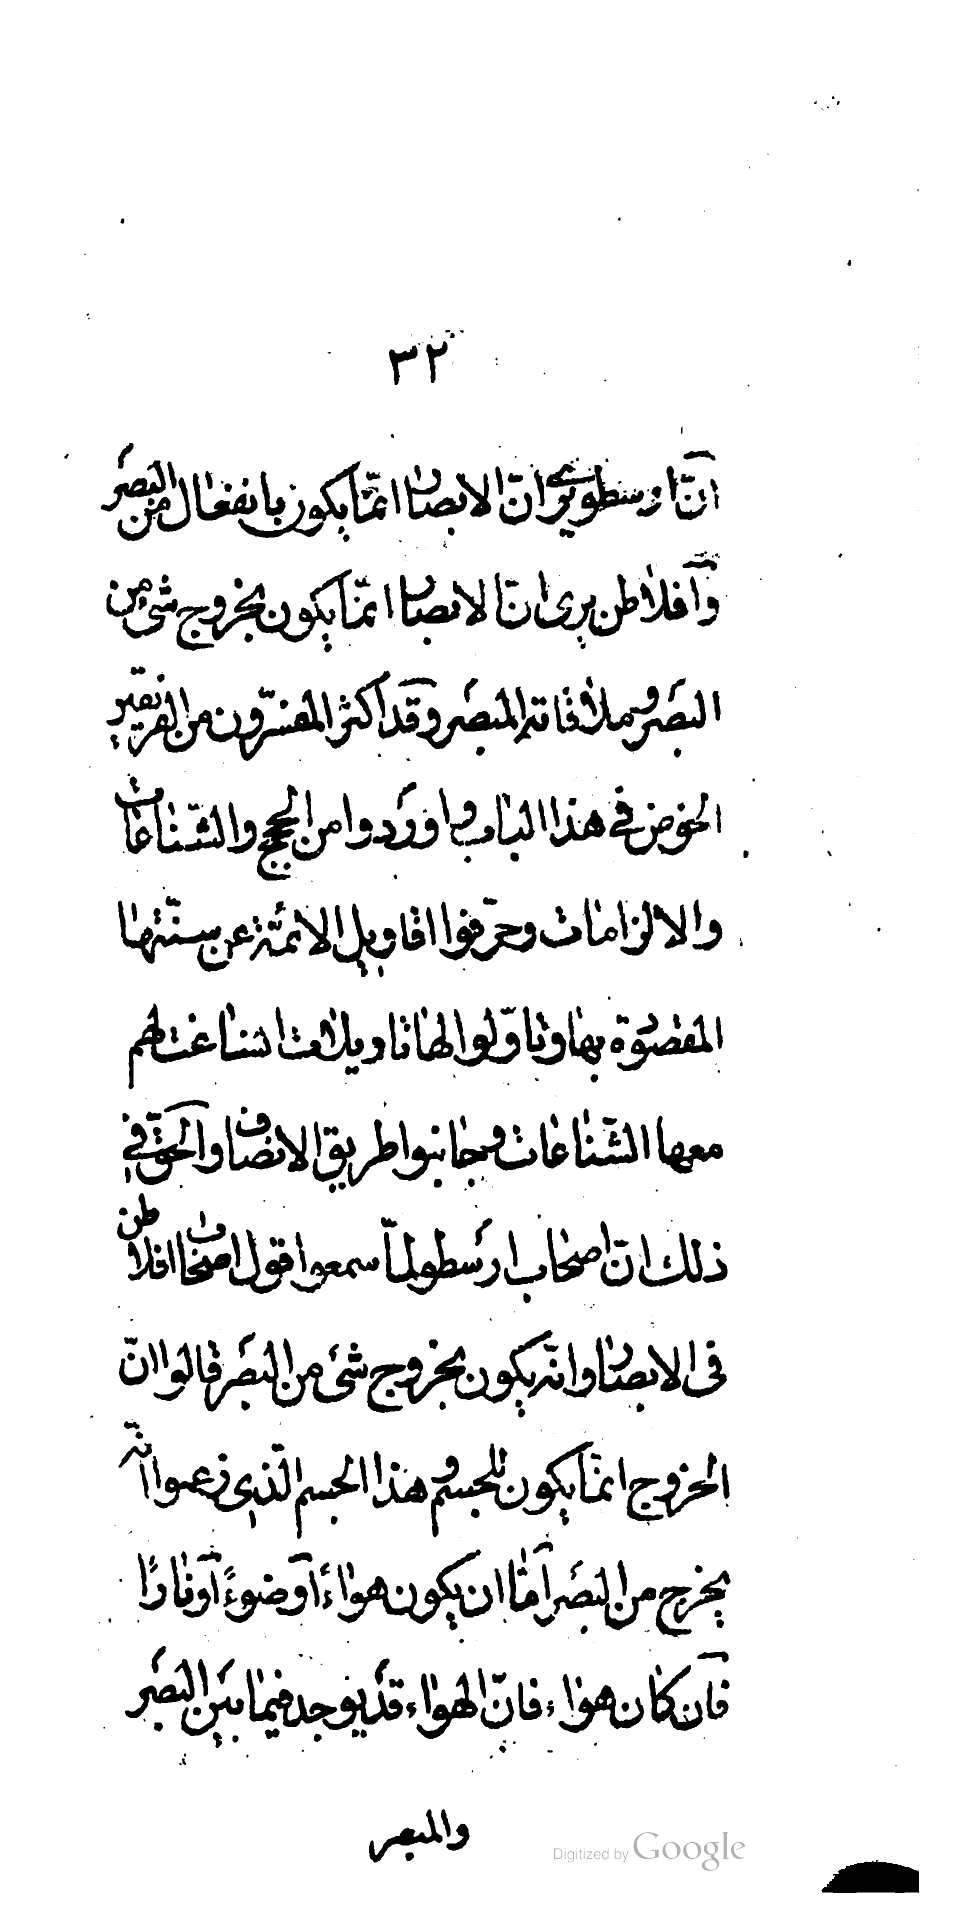 ٣٢
انّ ارسطو يرى انّ الابصار انّما يكون بانفعال من البصر
وافلاطن يرى انّ الابصار انّما يكون بخروج شئ من
البصر وملاقاته المبصر وقد اكثر المفسّرون من الفريقين
الخوض فى هذا الباب واوردوا من الحجج والشّناعات
والالزامات وحرّفوا اقاويل الائمّة عن سنّتها
المقصودة بها وتاوّلوا لها تاويلات انساغت لهم
معها الشّناعات وجانبوا طريق الانصاف والحقّ فى
ذلك انّ اصحاب ارسطو لمّا سمعوا قول اصحاب افلاطن
فى الابصار وانّه يكون بخروج شئ من البصر قالوا انّ
الخروج انّما يكون للجسم وهذا الجسم الّذى زعموا انّه
يخرج من البصر امّا ان يكون هواءً او ضوءً او نارًا
فان كان هواء، فانّ الهواء، قد يوجد فيما بين البصر
والمبصر
Digitized by Google